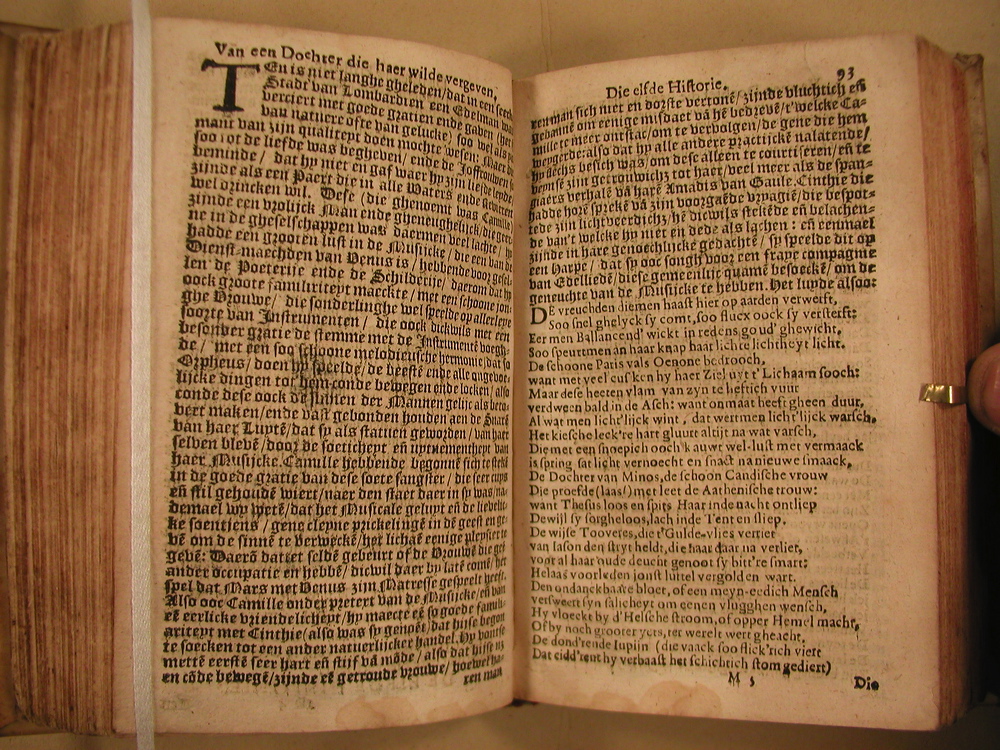 Van een Dochter die haer wilde vergeven,
TEn is niet langhe gheleden/dat in een seeck
Stadt van Lombardien een Edelman was
verciert met goede gratien ende gaben (het
van natuere ofte van gelucke) soo wel als
mant van zijn qualiteyt doen mochte wesen: Maer
soo tot de liefde was begheven/ ende de Joffrouwen
beminde/ dat hy niet en gaf waer hy zijn liefde leyde
zijnde als een Paert die in alle Waters ende
wel drincken wil. Dese (die ghenoemt was Camille)
zijnde een vrolijck Man ende gheneughelijck/die geer-
ne in de gheselschappen was daermen veel lachte/
hadde een grooten lust in de Musijcke/ die een van de
Dienst-maechden van Venus is/ hebbende voor gesel-
len de Poeterije ende de Schilderije/ daerom dat hy
oock groote familiriteyt maeckte/ met een schoone jon-
ghe Vrouwe/ die sonderlinghe wel speelde op allerleye
soorte van Instrumenten/ die oock dickwils met een
besonder gratie de stemme met de Instrumentē voegh-
de/ met een soo schoone melodieusche hermonie/dat so
Orpheus/doen hy speelde/de beeste ende alle ongevoe-
lijcke dingen tot hem conde bewegen ende locken/ also
conde dese oock de sinnen der Mannen gelijc als beto-
vert maken/ende vast gebonden houden aen de Snare
van haer Luyte/dat sy als statuen geworden/van haer
selven blevē/door de soeticheyt eñ uytnementheyt van
haer Musijcke. Camille hebbende begonnē sich te stellē
in de goede gratie van dese soete sangster/ die seer cuys
eñ stil gehoudē wiert/naer den staet daer in sy was/na-
demael wy wetē/dat het Musicale geluyt eñ de lieflic-
ke soentjens/ gene cleyne prickelinge in dē geest en ge-
vē om de sinnē te verweckē/het lichaē eenige pleysier te
gevē: Waerō datset seldē gebeurt of de Vrouwē die geē
ander occupatie en hebbē/ dicwil daer by latē comē/het
spel dat Mars met Venus zijn Matresse gespeelt heeft.
Also ooc Camille onder pretext van de Musijcke/eñ van
eē eerlicke vriendelicheyt/hy maecte eē so goede famili-
ariteyt met Cinthie (also was sy genoēt) dat hise begon
te soecken tot een ander natuerlijcker handel. Hy vontse
mettē eerstē seer hart eñ stijf vā mōde/ also dat hise niet
en cōde bewegē/zijnde eē getroude vrouwe/ hoewel ha-
ren man
Die elfde Historie. 93
ren man sich niet en dorste vertonē/ zijnde vluchtich eñ
gebannē om eenige misdaet vā hē bedrevē/t'welcke Ca-
mille te meer ontstac/om te vervolgen/de gene die hem
weygerde: also dat hy alle andere practijckē nalatende/
hy slechs besich was/om dese alleen te courtiseren/eñ te
beynsē zijn getrouwichz tot haer/veel meer als de span-
giaers verhalē vā harē Amadis van Gaule. Cinthie die
hadde horē sprekē vā zijn voorgaēde vryagiē/die bespot-
tede zijn lichtveerdichz/hē dicwils stekēde eñ belachen-
de van't welcke hy niet en dede als lachen: eñ eenmael
zijnde in hare genoechlijcke gedachtē/ sy speelde dit op
een Harpe/ dat sy ooc songh voor een fraye compagnie
van Edelliedē/diese gemeenlijc quamē besoeckē/ om de
geneuchte van de Musijcke te hebben. Het luyde alsoo:
DE vreuchden diemen haast hier op aarden verwerft,
Soo snel ghelyck sy comt, soo flucx oock sy versterft:
Eer men Ballancend' wickt in redens goud' ghewicht,
Soo speurtmen an haar knap haar lichte lichtheyt licht.
De schoone Paris vals Oenone bedrooch,
want met veel cuskens hy haer Ziel uyt t' Lichaam sooch:
Maar dese heeten vlam van zyn te heftich vuur
verdween bald in de Asch: want onmaat heeft gheen duur,
Al wat men licht'lijck wint, dat wertmen licht'lijck warsch.
Het kiesche leck're hart gluurt altijt na wat varsch,
Die met een snoepich ooch k auwt wel-lust met vermaack
is spring sat licht vernoecht en snact na nieuwe smaack,
De Dochter van Minos, de schoon Candische vrouw
Die proefde (laas!) met leet de Aathenische trouw:
want Thesus loos en spits Haar inde nacht ontliep
Dewijl sy sorgheloos, lach inde Tent en sliep.
De wijse Tooveres, die t'Gulde-vlies verriet
van Iason den stryt heldt, die haar daar na verliet,
voor al haar oude deucht genoot sy bitt're smart:
Helaas voorleden jonst luttel vergolden wart.
Den ondanckbaare bloet, of een meyn-eedich Mensch
versweert syn salicheyt om eenen vlugghen wensch,
Hy vloeckt by d'Helsche stroom, of opper Hemel macht,
Of by noch grooter yets, ter werelt wert gheacht,
De dond'rende Iupijn (die vaack soo flick'rich viert
Dat cidd'rent hy verbaast het schichtich stom gediert)
M 5 Die